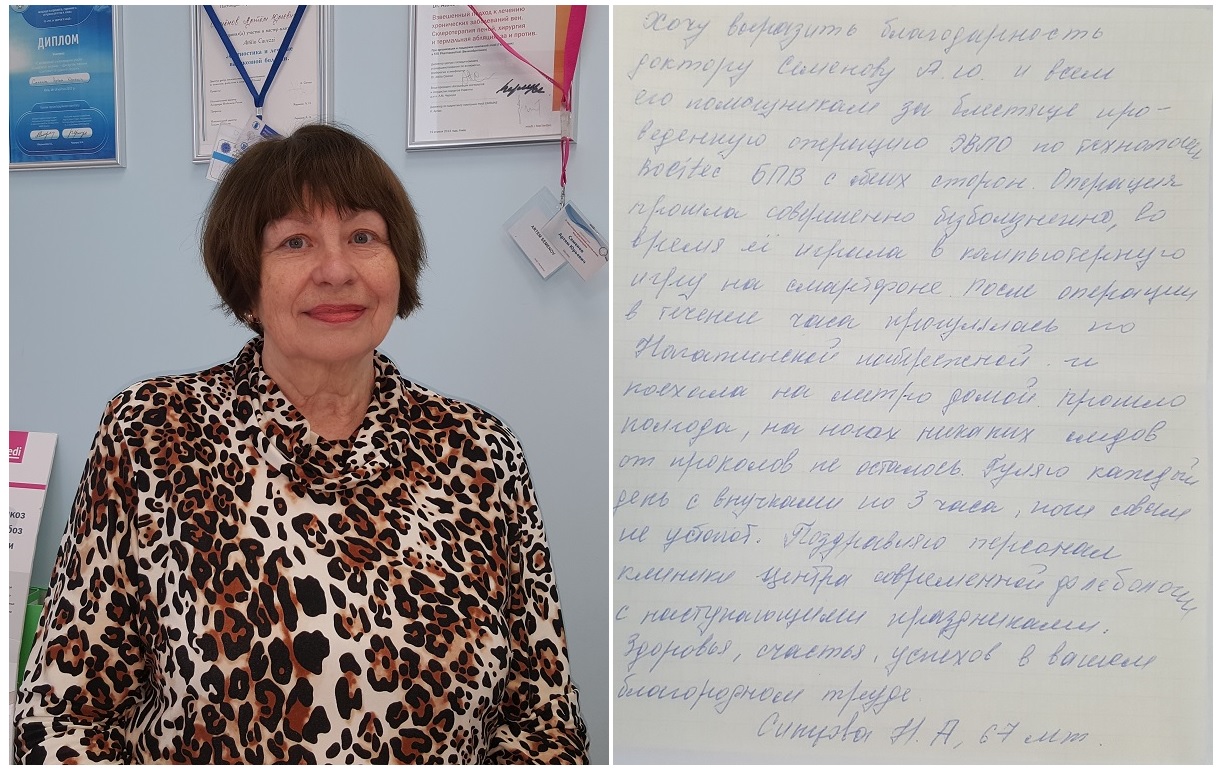 ДИПЛОМ
Взвешенный подход к лечению
хронических заболеваний вен.
Склеротерапия пеной, хирургия
и термальная абляция: за и против
ARTEM SEMENOV
Семенов
Артем Юрьевич
edi
Хочу выразить благодарность
доктору Семенову А. Ю. и всем
его помощникам за блестяще про-
веденную операцию ЭВЛО по технологии
Biolitec БПВ с обеих сторон. Операция
прошла совершенно безболезненно, во
время её играла в компьютерную
игру на смартфоне. После операции
в течение часа прогулялась по
Нагатинской набережной и
поехала на метро домой. Прошло
полгода, на ногах никаких следов
от проколов не осталось. Гуляю каждый
день с внучками по 3 часа, ноги совсем
не устают. Поздравляю персонал
клиники Центра современной флебологии
с наступающими праздниками.
Здоровья, счастья, успехов в вашем
благородном труде.
Н. А, 67 лет.